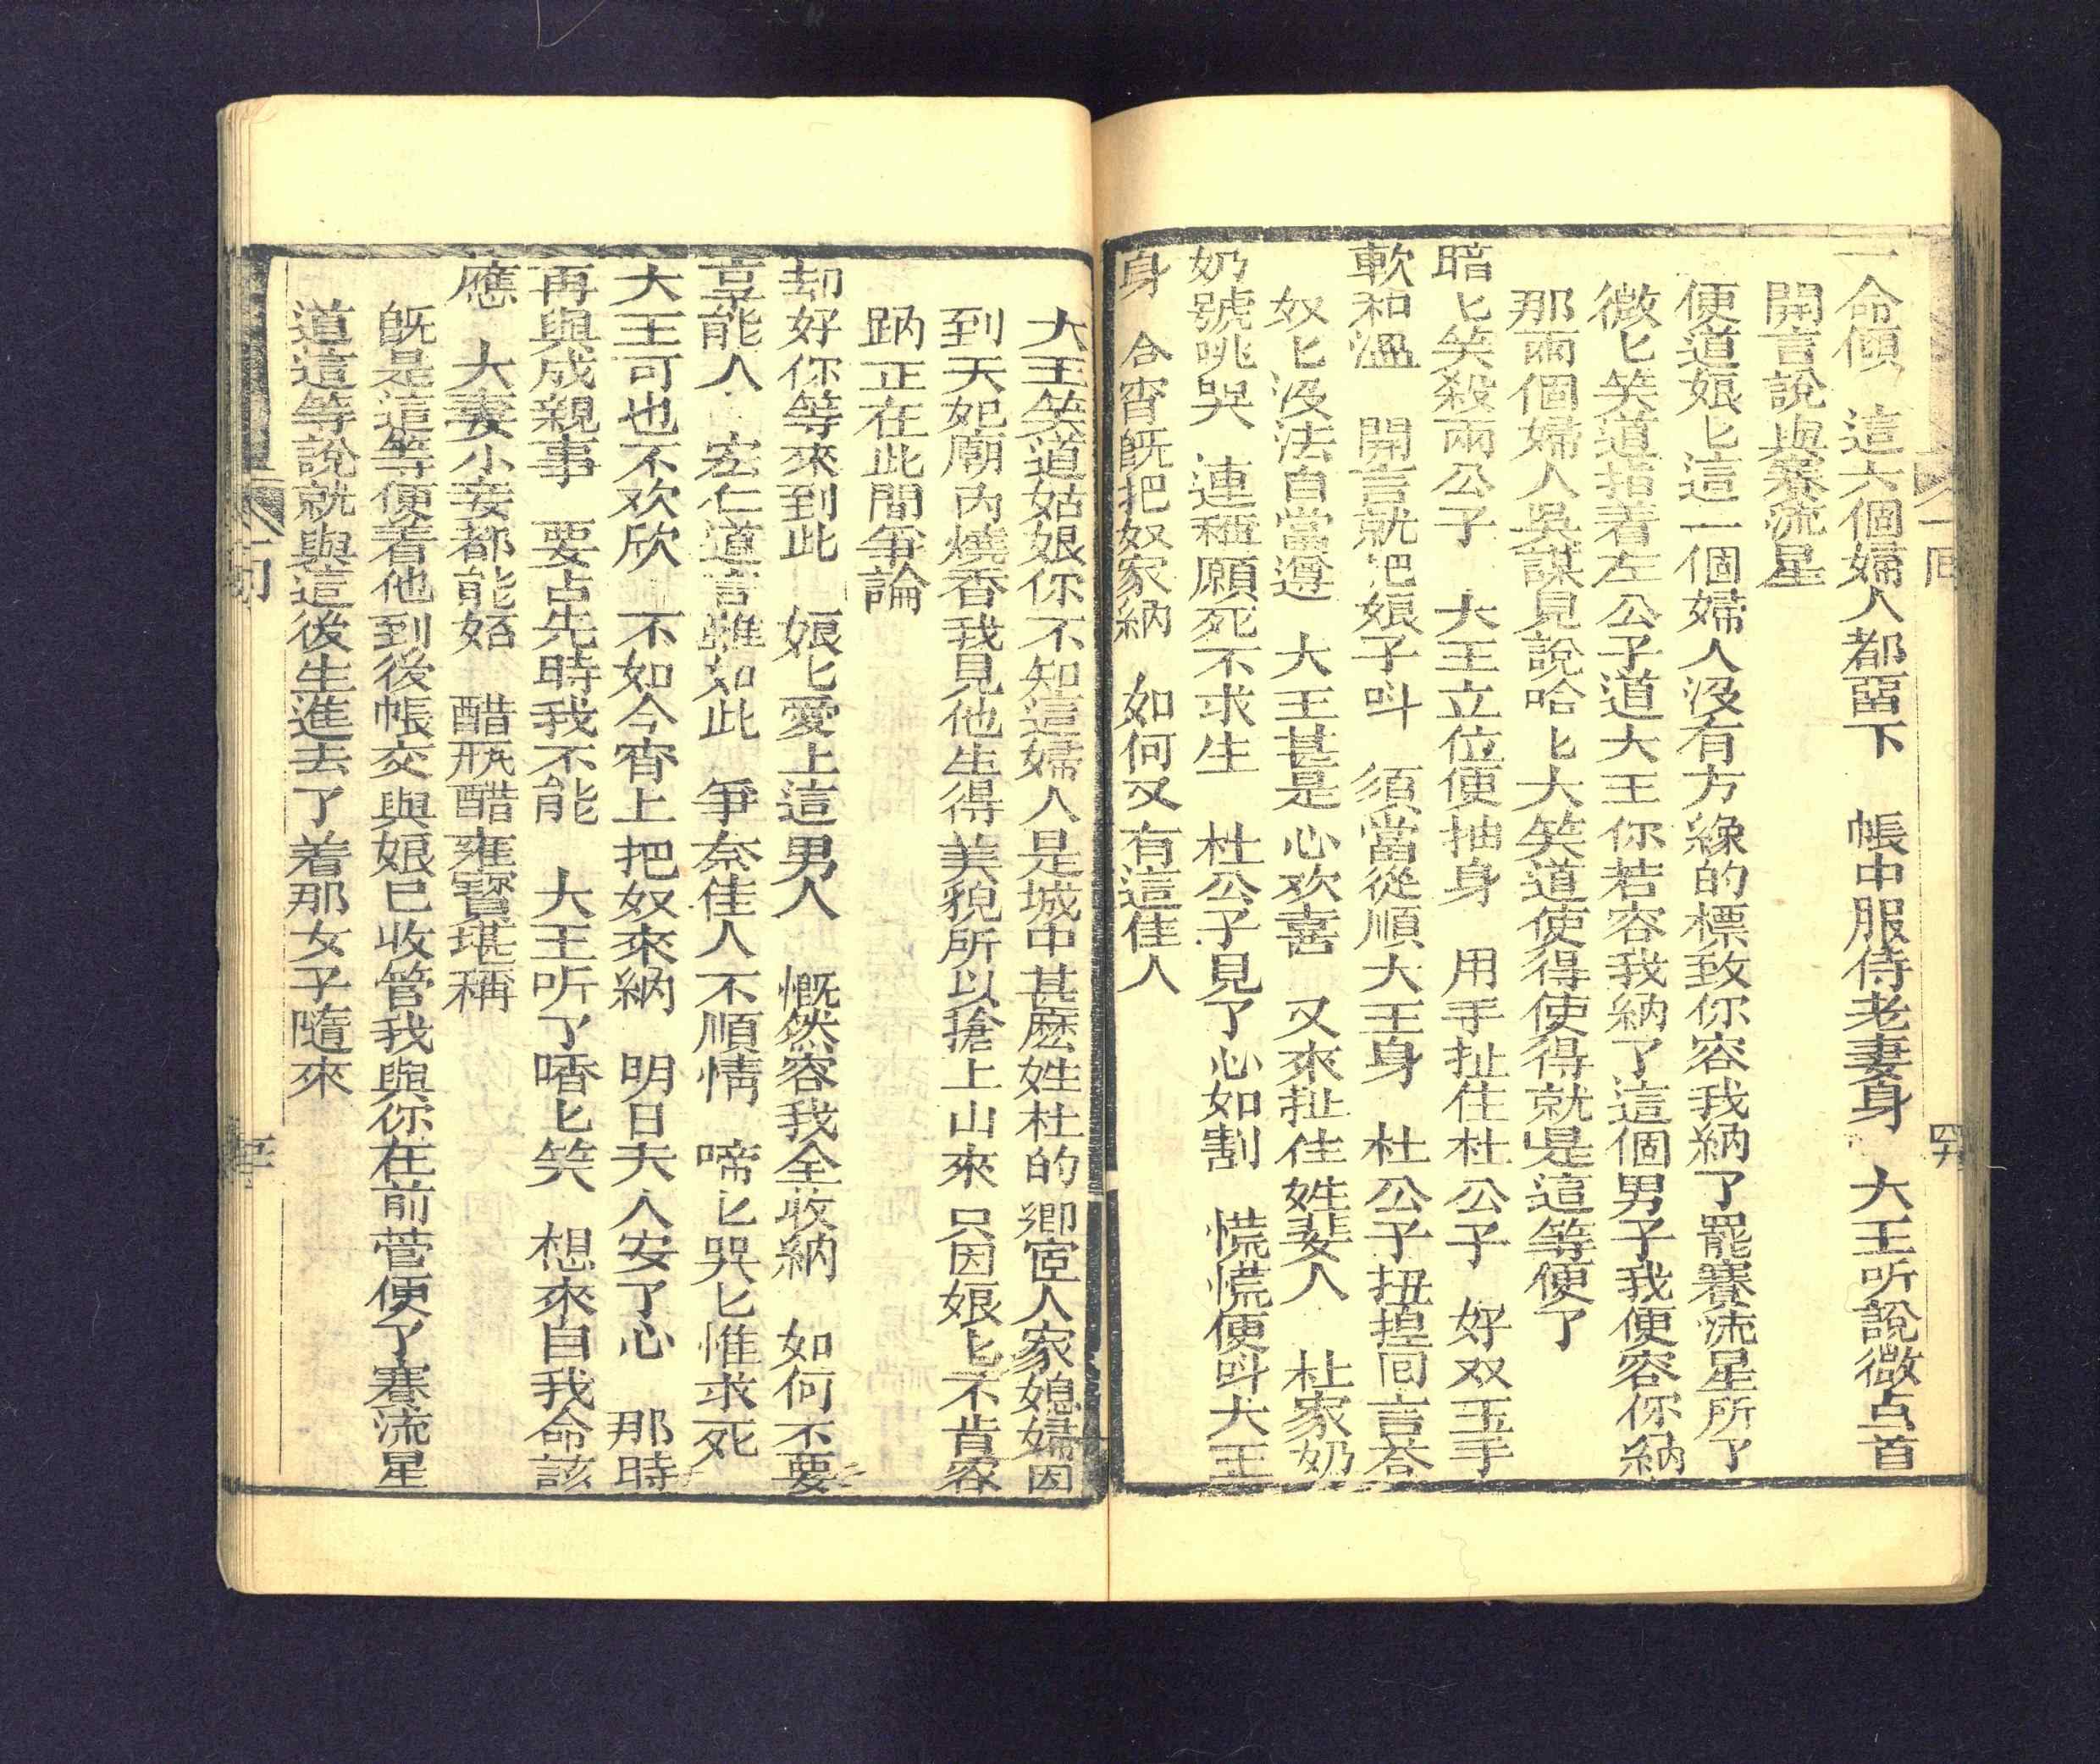 一命傾　這六個婦人都畱下　帳中服侍老妻身　大王听說微占首
開言說與賽流星
便道娘匕這一個婦人沒有方緣的標致你容我納了罷賽流星所了
微匕笑道指着左公子道大王你若容我納了這個男子我便容你納
那兩個婦人吳謀見說哈匕大笑道使得使得就是這等便了
暗匕笑殺兩公子　大王立位便抽身　用手扯住杜公子　好双玉手
軟和溫　開言就把娘子呌　須當從順大王身　杜公子扭捏囘言荅
奴匕沒法自當遵　大王甚是心欢喜　又來扯住姓婁人　杜家奶
奶號咷哭　連稱願死不求生　杜公子見了心如割　慌慌便呌大王
身　合宵旣把奴家納　如何又有這佳人
大王笑道姑娘你不知這婦人是城中甚麽姓杜的鄉宦人家媳婦因
到天妃廟內燒香我見他生得美貌所以搶上山來只因娘匕不肯容
納正在此間爭論
却好你等來到此　娘匕愛上這男人　慨然容我全收納　如何不要
享能人　宏仁道言雖如此　爭奈佳人不順情　啼匕哭匕惟求死
大王可也不欢欣　不如今宵上把奴來納　明日夫人安了心　那時
再與成親事　要占先時我不能　大王听了嘻匕笑　想來自我命該
應　大妻小妾都能妬　醋瓶醋雍實堪稱
旣是這等便着他到後帳交與娘匕收管我與你在前營便了賽流星
道這等說就與這後生進去了着那女子隨來